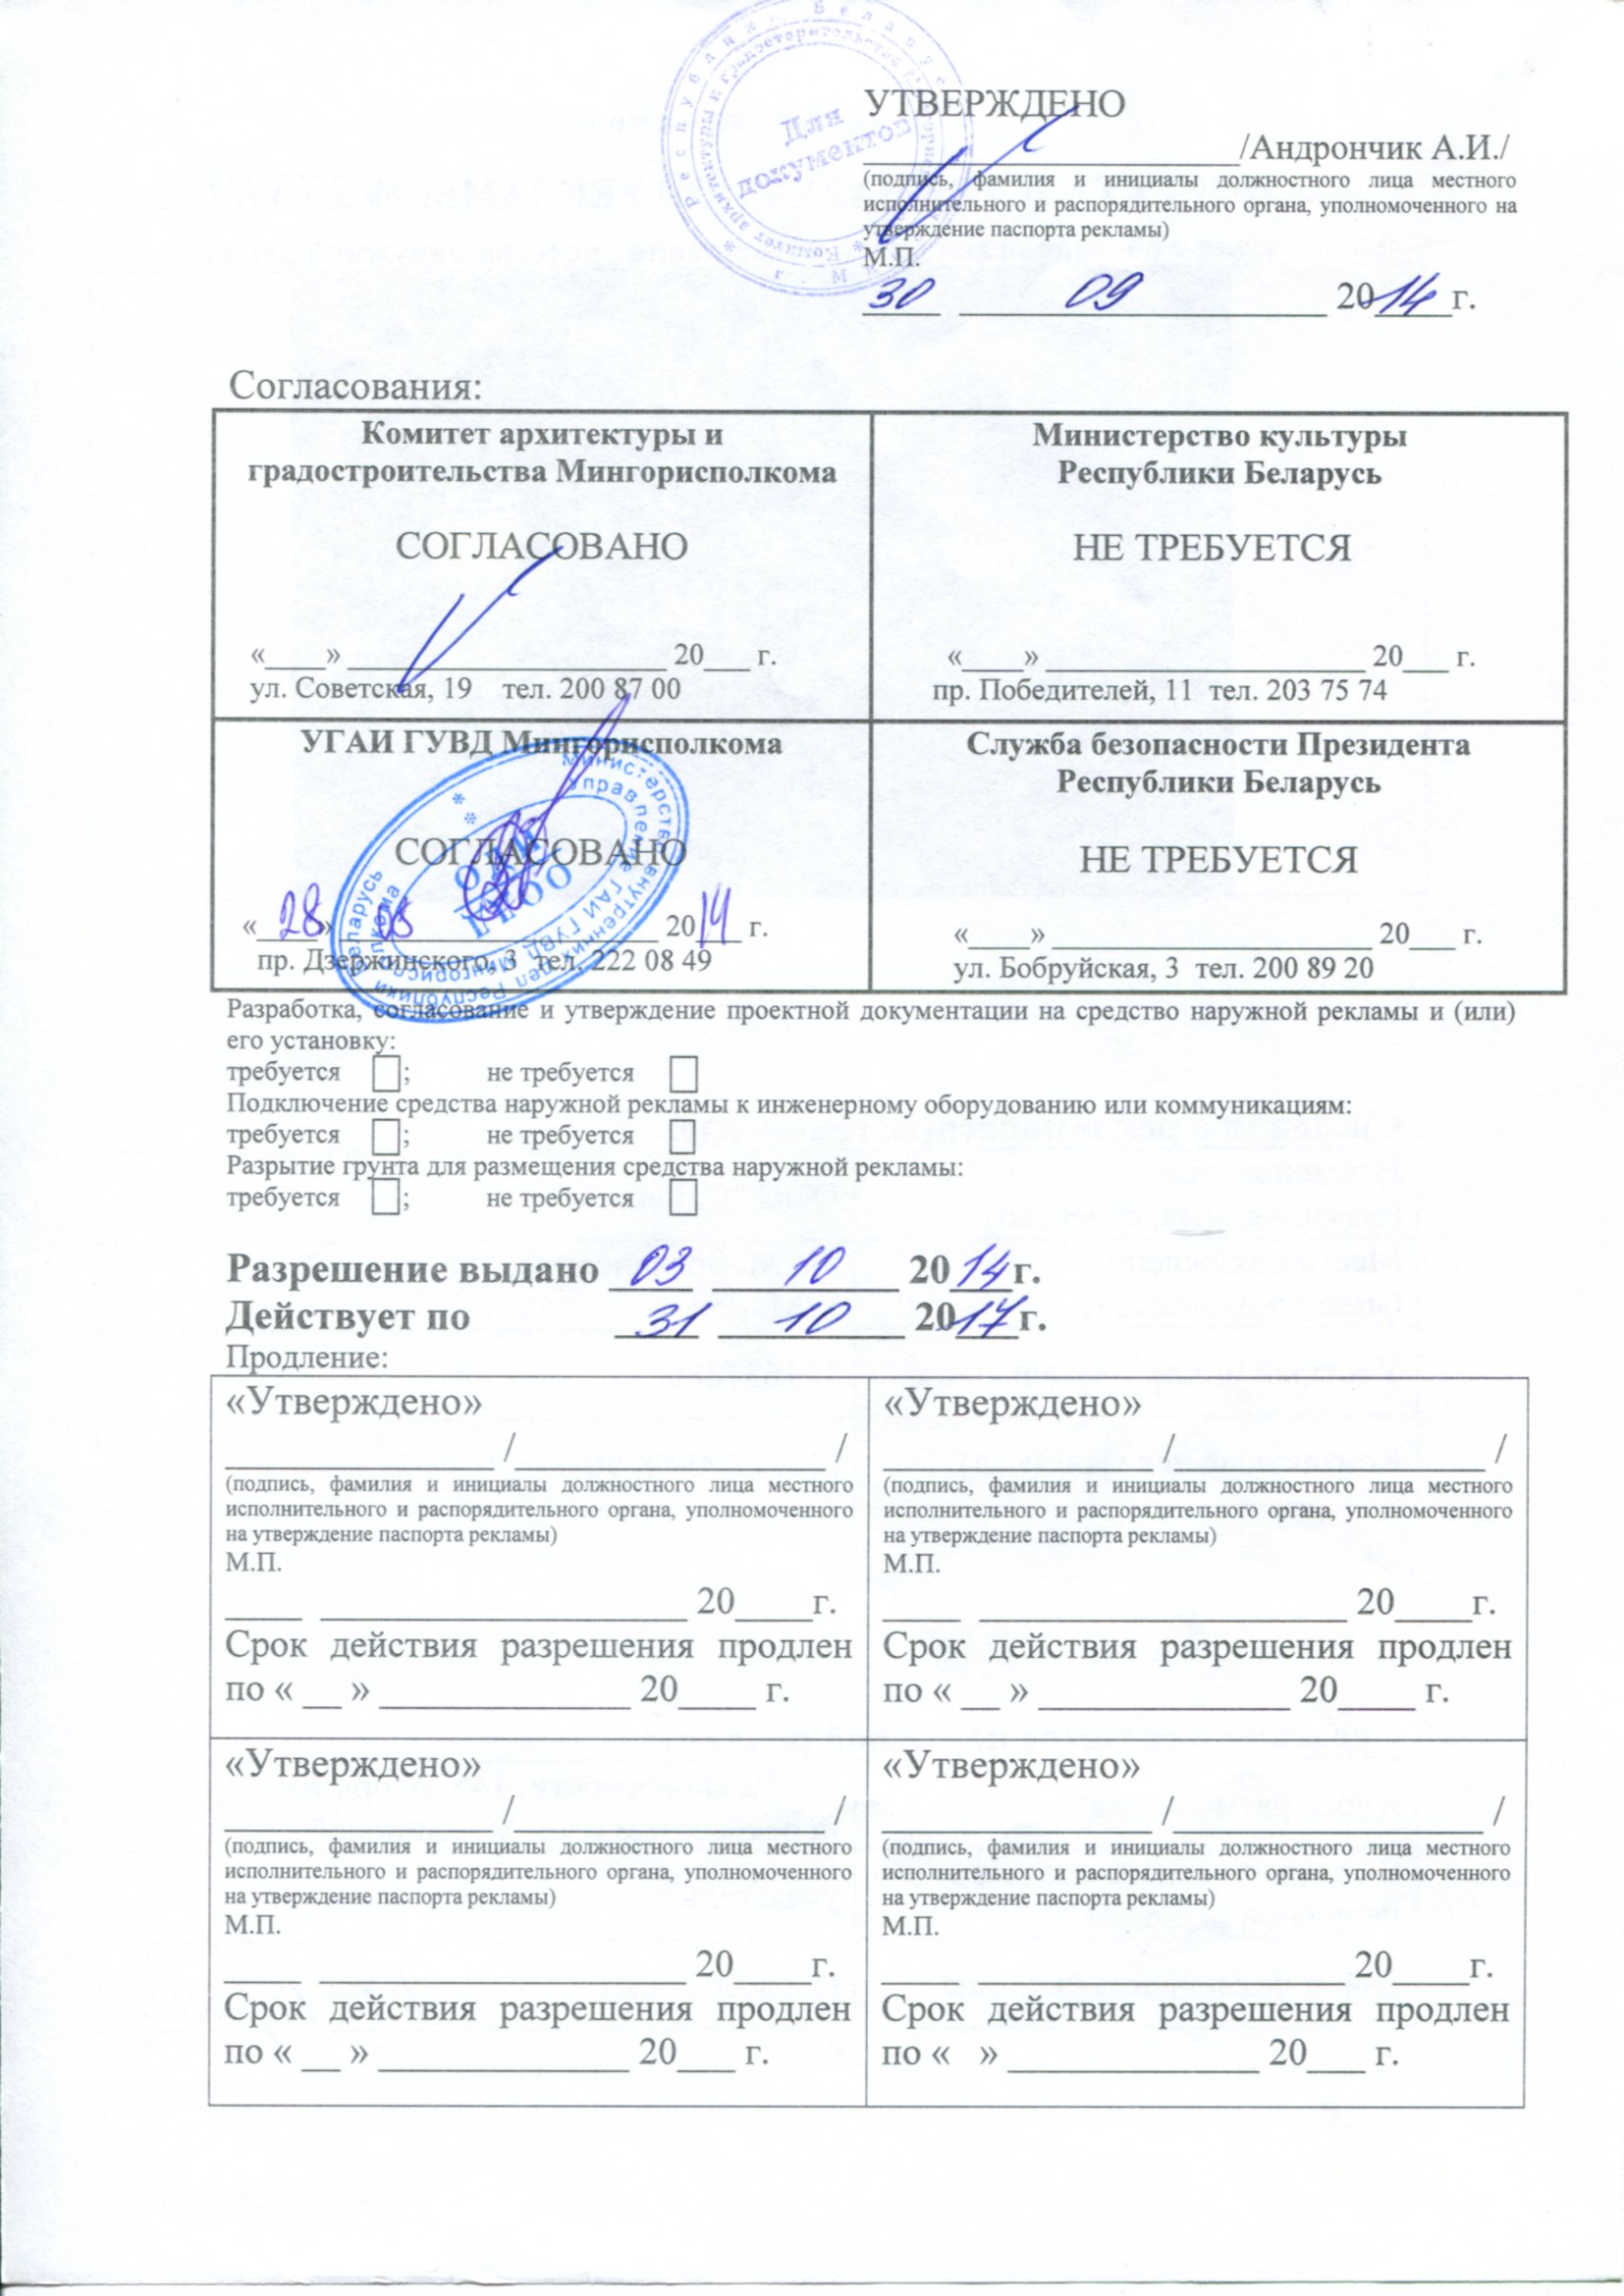 УТВЕРЖДЕНО
/Андрончик А.И./
(подпись, фамилия и инициалы должностного лица местного
исполнительного и распорядительного органа, уполномоченного на
утверждение паспорта рекламы)
М.П.
30 09 2014 г.
Для
документов
Согласования:
Комитет архитектуры и
градостроительства Мингорисполкома
СОГЛАСОВАНО
«____» ____________________ 20___ г.
ул. Советская, 19 тел. 200 87 00
Министерство культуры
Республики Беларусь
НЕ ТРЕБУЕТСЯ
«____» ____________________ 20___ г.
пр. Победителей, 11 тел. 203 75 74
УГАИ ГУВД Мингорисполкома
СОГЛАСОВАНО
«28» 08 2014 г.
пр. Дзержинского, 3 тел. 222 08 49
Служба безопасности Президента
Республики Беларусь
НЕ ТРЕБУЕТСЯ
«____» ____________________ 20___ г.
ул. Бобруйская, 3 тел. 200 89 20
Разработка, согласование и утверждение проектной документации на средство наружной рекламы и (или)
его установку:
требуется ; не требуется
Подключение средства наружной рекламы к инженерному оборудованию или коммуникациям:
требуется ; не требуется
Разрытие грунта для размещения средства наружной рекламы:
требуется ; не требуется
Разрешение выдано 03 10 2014 г.
Действует по 31 10 2017 г.
Продление:
«Утверждено»
______________ /________________ /
(подпись, фамилия и инициалы должностного лица местного
исполнительного и распорядительного органа, уполномоченного
на утверждение паспорта рекламы)
М.П.
____ ___________________ 20____г.
Срок действия разрешения продлен
по « __ » _____________ 20____ г.
«Утверждено»
______________ /________________ /
(подпись, фамилия и инициалы должностного лица местного
исполнительного и распорядительного органа, уполномоченного
на утверждение паспорта рекламы)
М.П.
____ ___________________ 20____г.
Срок действия разрешения продлен
по « __ » _____________ 20____ г.
«Утверждено»
______________ /________________ /
(подпись, фамилия и инициалы должностного лица местного
исполнительного и распорядительного органа, уполномоченного
на утверждение паспорта рекламы)
М.П.
____ ___________________ 20____г.
Срок действия разрешения продлен
по « __ » _____________ 20___ г.
«Утверждено»
______________ /________________ /
(подпись, фамилия и инициалы должностного лица местного
исполнительного и распорядительного органа, уполномоченного
на утверждение паспорта рекламы)
М.П.
____ ___________________ 20____г.
Срок действия разрешения продлен
по « » _____________ 20___ г.